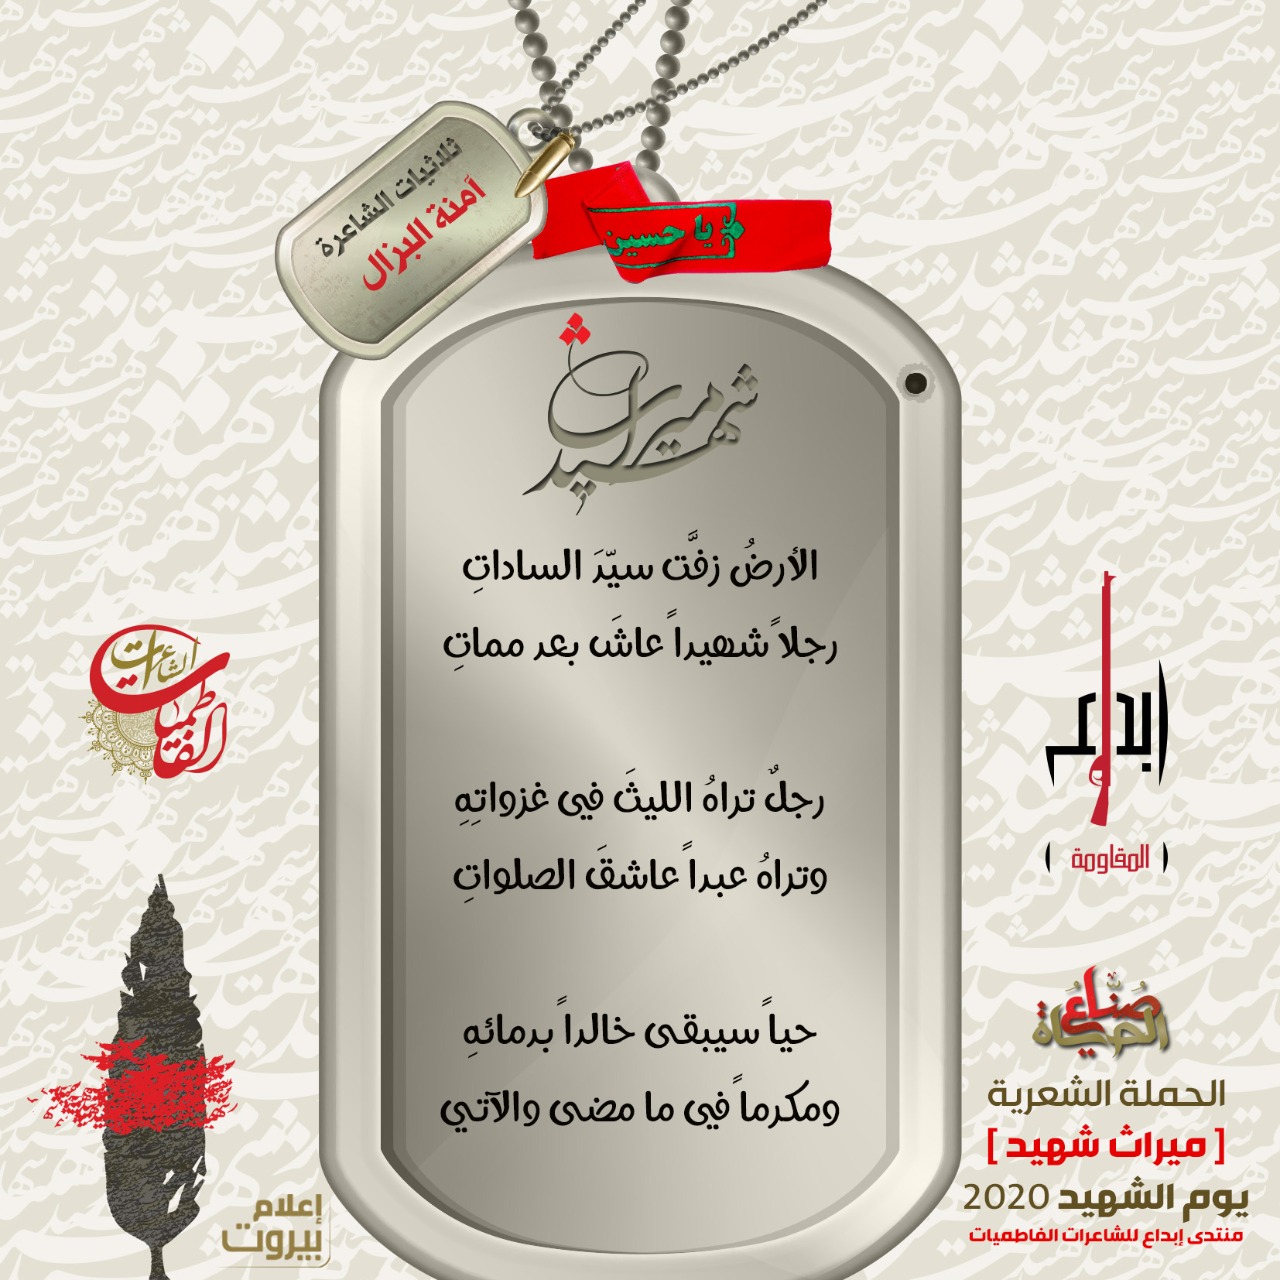 ثلاثيات الشاعرة
آمنة البزال
يا حسين
ميراث شهيد
الأرضُ زفَّت سيّدَ الساداتِ
رجلاً شهيداً عاشَ بعد مماتِ
رجلٌ تراهُ الليثَ في غزواتِهِ
وتراهُ عبداً عاشقَ الصلواتِ
حياً سيبقى خالداً بدمائهِ
ومكرماً في ما مضى والآتي
الشاعرات
الفاطميات
إبداع
( المقاومة )
صُنَّاعُ
الحياة
الحملة الشعرية
[ ميراث شهيد ]
يوم الشهيد 2020
منتدى إبداع للشاعرات الفاطميات
إعلام
بيروت